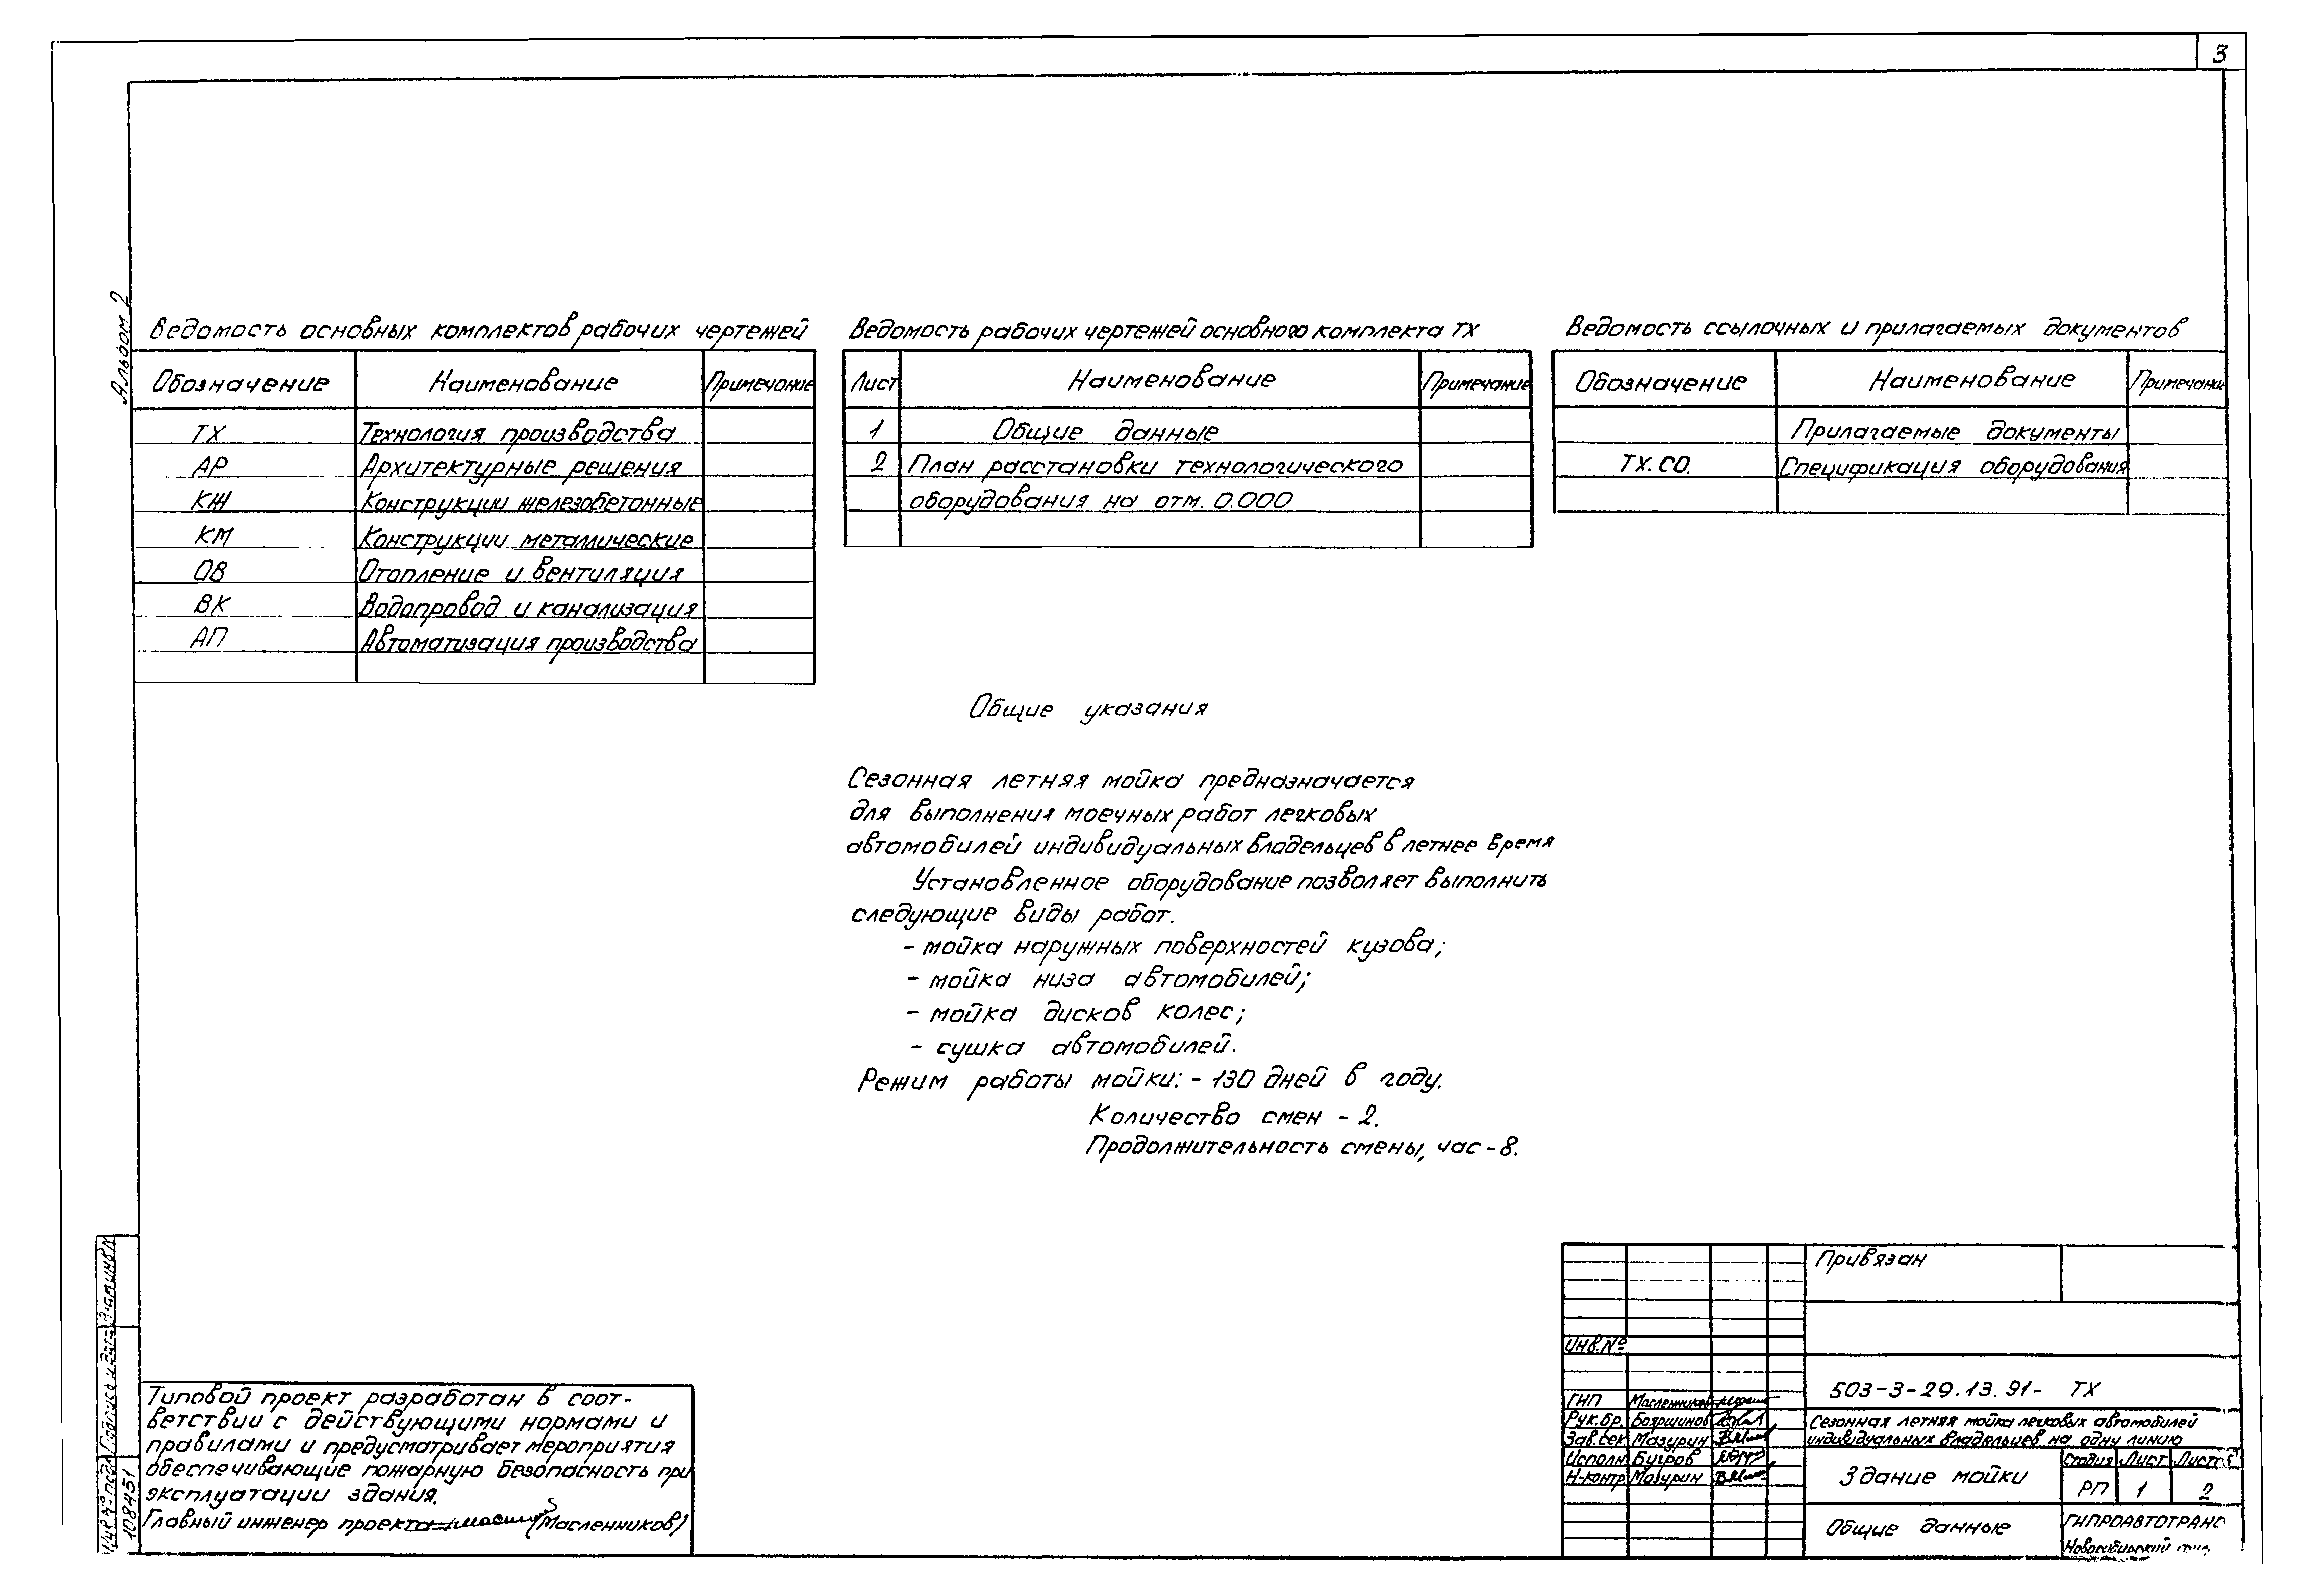 3
Альбом 2
Ведомость основных комплектов рабочих чертежей
Обозначение Наименование Примечание
ТХ Технология производства
АР Архитектурные решения
КЖ Конструкции железобетонные
КМ Конструкции металлические
ОВ Отопление и вентиляция
ВК Водопровод и канализация
АП Автоматизация производства
Ведомость рабочих чертежей основного комплекта ТХ
Лист Наименование Примечание
1 Общие данные
2 План расстановки технологического
оборудования на отм. 0.000
Ведомость ссылочных и прилагаемых документов
Обозначение Наименование Примечание
Прилагаемые документы
ТХ.СО. Спецификация оборудования
Общие указания
Сезонная летняя мойка предназначается
для выполнения моечных работ легковых
автомобилей индивидуальных владельцев в летнее время
Установленное оборудование позволяет выполнить
следующие виды работ.
- мойка наружных поверхностей кузова;
- мойка низа автомобилей;
- мойка дисков колес;
- сушка автомобилей.
Режим работы мойки: - 130 дней в году.
Количество смен - 2.
Продолжительность смены, час - 8.
Типовой проект разработан в соот-
ветствии с действующими нормами и
правилами и предусматривает мероприятия
обеспечивающие пожарную безопасность при
эксплуатации здания.
Главный инженер проекта (Масленников)
Инв.№ подл Подпись и дата
108451
Привязан
Инв.№
503-3-29.13.91- ТХ
ГИП Масленников
Рук.бр. Бояршинов
Зав.сек Мазурин
Исполн Бугров
Н-контр Мазурин
Сезонная летняя мойка легковых автомобилей
индивидуальных владельцев на одну линию
Здание мойки
Стадия Лист Листов
РП 1 2
Общие данные
ГИПРОАВТОТРАНС
Новосибирский